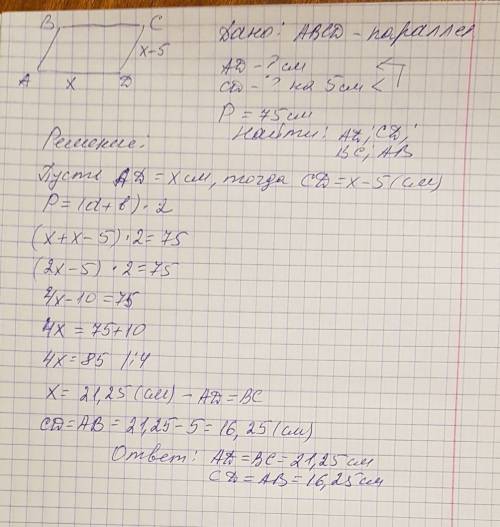 B C
x-5
A x D
Дано: ABCD - параллел
AD - ? см
CD - ? на 5 см <
P = 75 см
Найти: AD; CD;
BC; AB
Решение:
Пусть AD = x см, тогда CD = x-5 (см)
P = (a+b)·2
(x+x-5)·2=75
(2x-5)·2=75
4x-10=75
4x = 75+10
4x = 85 |:4
x = 21,25 (см) - AD = BC
CD = AB = 21,25-5 = 16,25 (см)
Ответ: AD = BC = 21,25 см
CD = AB = 16,25 см